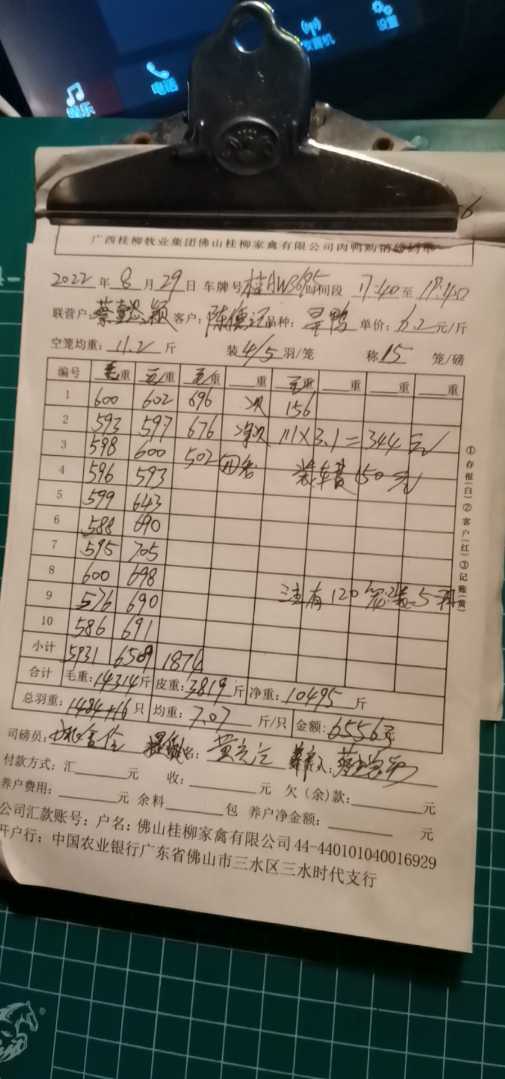 娱乐
电话
收音机
设置
广西桂柳牧业集团佛山桂柳家禽有限公司肉鸭购销
2022 年 8 月 29 日 车牌号 时间段 17:40 至
联营户: 客户: 品种: 单价: 6.2 元/斤
空笼均重: 11.2 斤 装 4/5 羽/笼 称 15 笼/磅
编号 毛重 毛重 毛重 重 毛重 重 重 重
1 600 602 696 次 156
2 593 597 676 净次 111×3.1=344元
3 598 600 502 装车费 150元
4 596 593
5 599 643
6 588 690
7 595 705
8 600 698
9 576 690 注有120笼装5羽
10 586 691
小计 5931 6509 1874
合计 毛重: 14314 斤 皮重: 3819 斤 净重: 10495 斤
总羽重: 1484+16 只 均重: 7.07 斤/只 金额: 65563
司磅员:
付款方式: 汇 元 收: 元 欠(余)款: 元
养户费用: 元 余料 包 养户净金额: 元
公司汇款账号: 户名: 佛山桂柳家禽有限公司 44-440101040016929
开户行: 中国农业银行广东省佛山市三水区三水时代支行
①存根(白)②客户(红)③记账(黄)